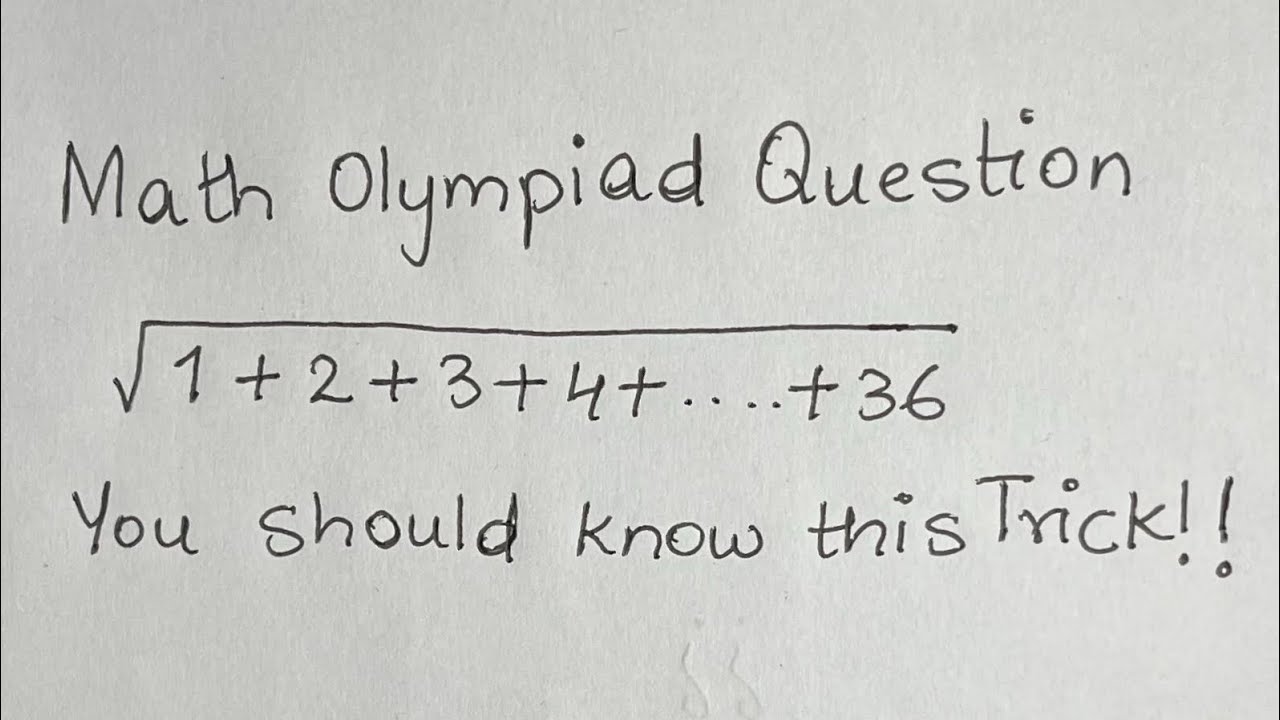 Math Olympiad Question
√1+2+3+4+....+36
You should know this Trick!!